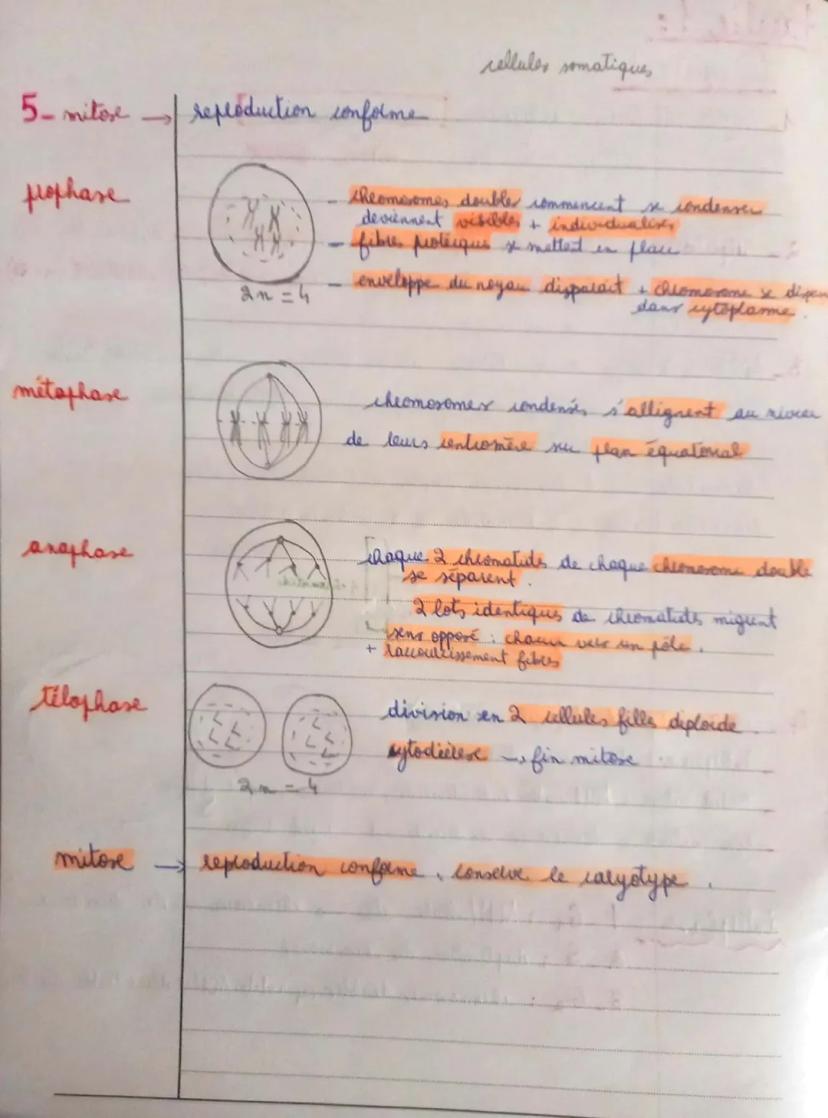 cellules somatiques
5- mitose → reproduction conforme
prophase
- chromosomes doubles commencent se condenser
deviennent visibles + individualisés
- fibres protéiques se mettent en place
- enveloppe du noyau disparait + chromosome se
dans cytoplasme.
2n = 4
métaphase
chromosomes condensés s'allignent au niveau
de leurs centromère sur plan équatorial
anaphase
chaque 2 chromatides de chaque chromosome double
se séparent.
2 lots identiques de chromatides migrent
sens opposé : chacun vers un pôle.
+ raccourcissement fibres
télophase
division en 2 cellules filles diploïde
cytodiérèse → fin mitose
2n = 4
mitose → reproduction conforme, conserve le caryotype.